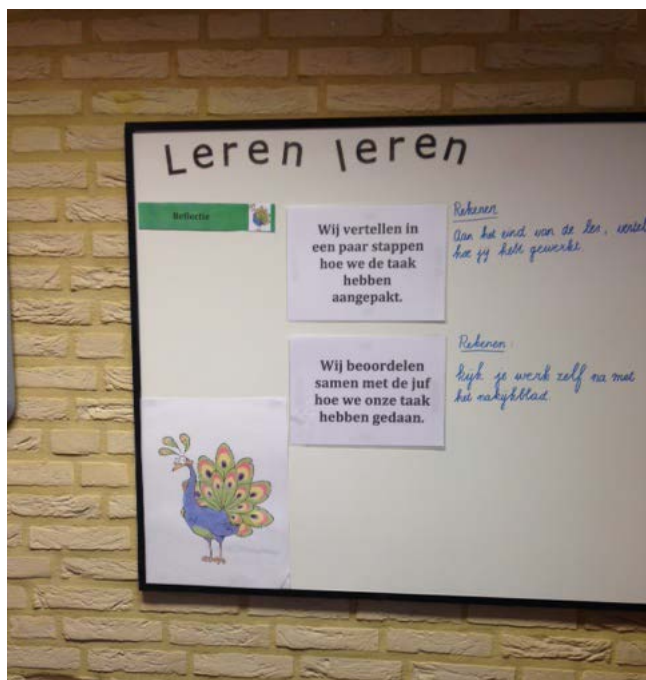 Leren leren
Reflectie
Wij vertellen in
een paar stappen
hoe we de taak
hebben
aangepakt.
Rekenen
Aan het eind van de les, vertel
hoe jij hebt gewerkt.
Wij beoordelen
samen met de juf
hoe we onze taak
hebben gedaan.
Rekenen:
kijk je werk zelf na met
het nakijkblad.